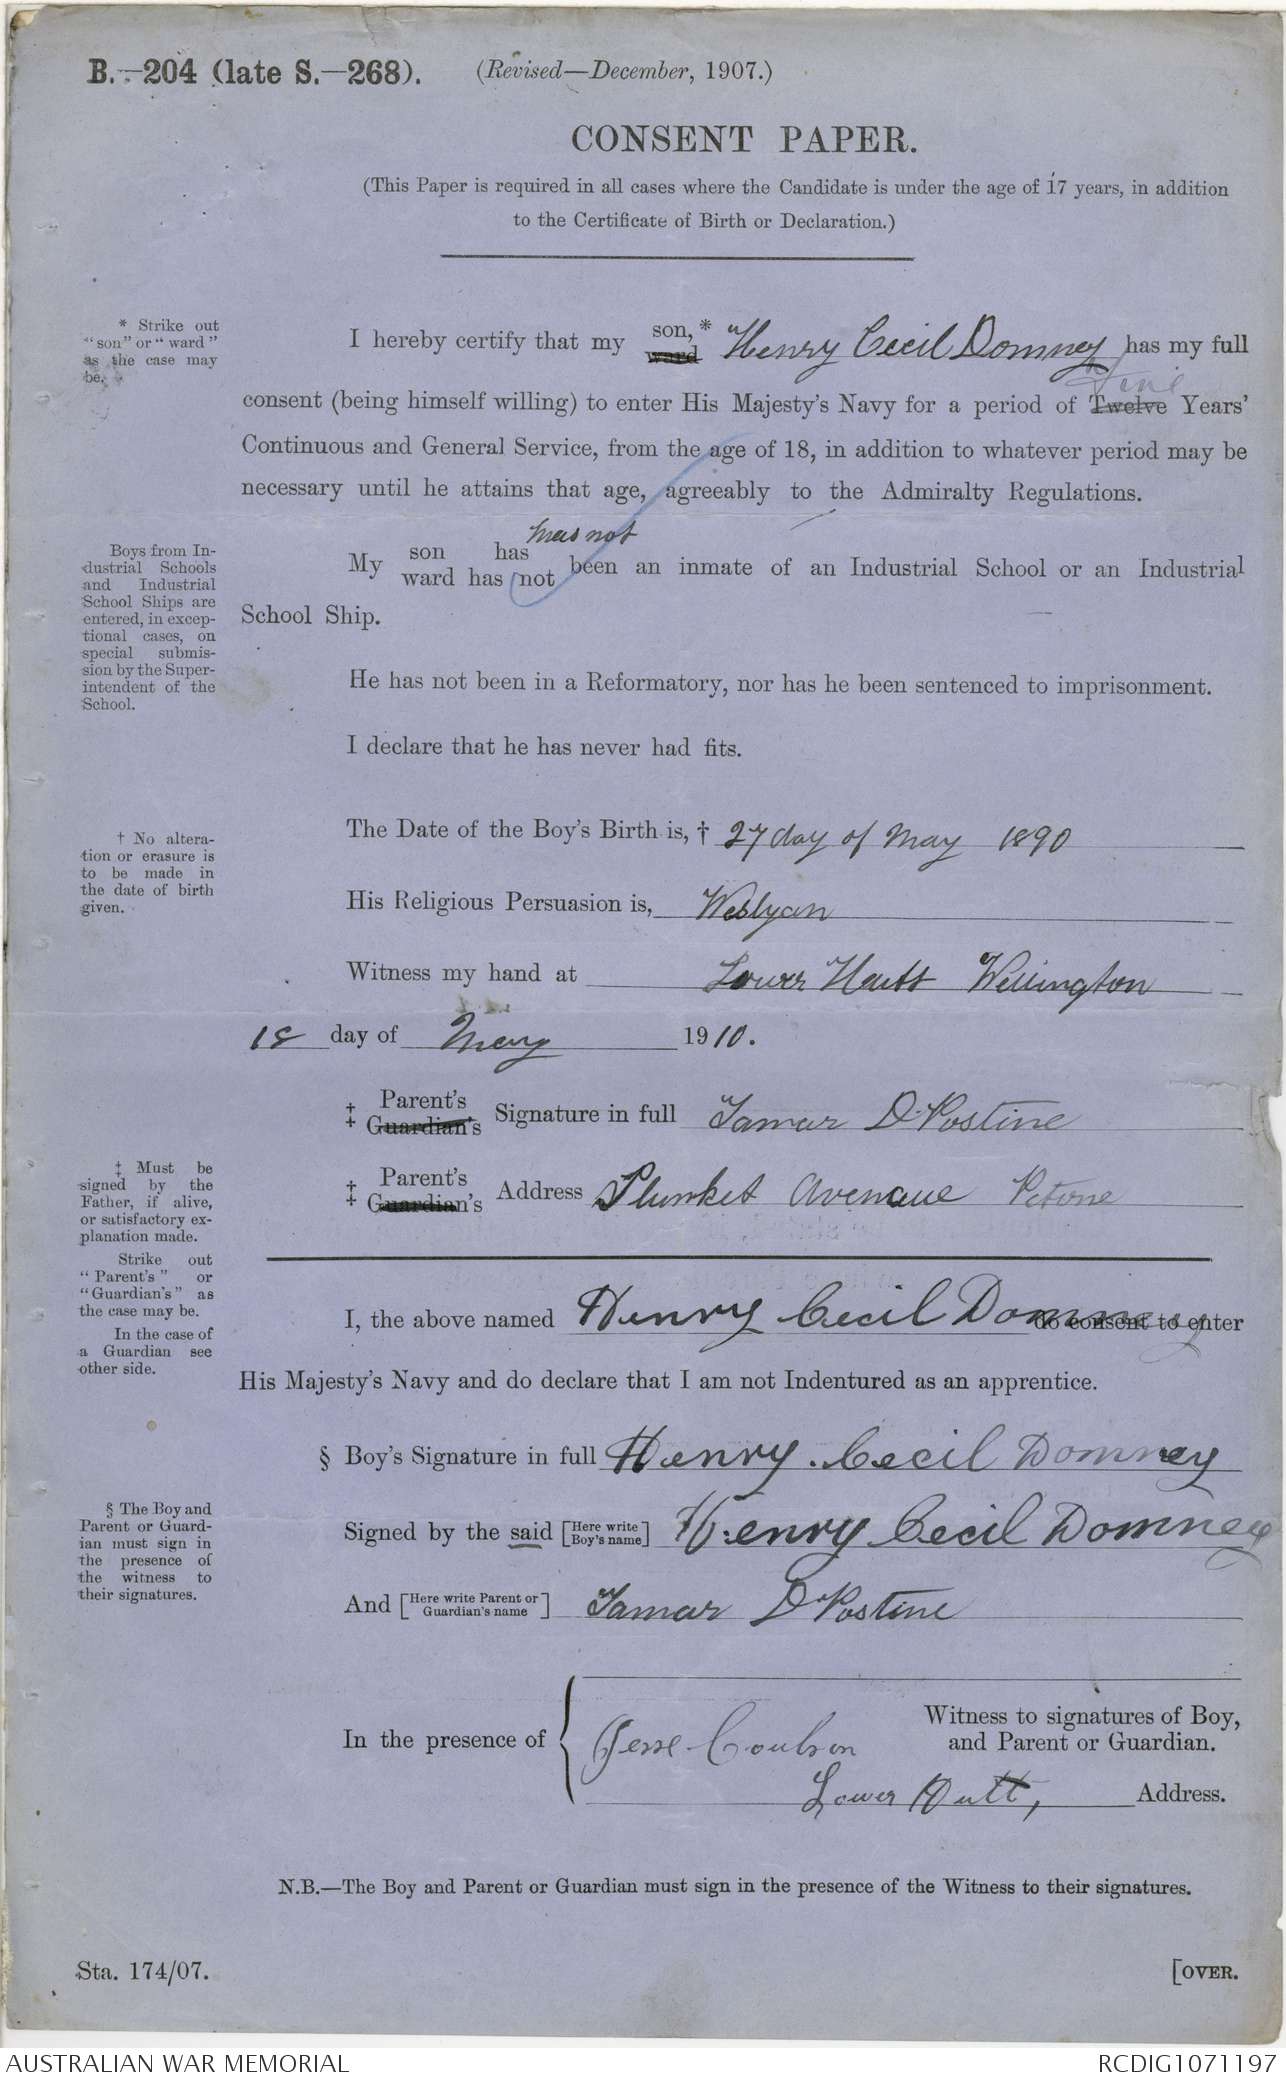 B.—204 (late S.—268). (Revised—December, 1907.)
CONSENT PAPER.
(This Paper is required in all cases where the Candidate is under the age of 17 years, in addition
to the Certificate of Birth or Declaration.)
* Strike out
"son" or "ward"
as the case may
be.
I hereby certify that my son,* ward Henry Cecil Domney has my full
five
consent (being himself willing) to enter His Majesty's Navy for a period of Twelve Years'
Continuous and General Service, from the age of 18, in addition to whatever period may be
necessary until he attains that age, agreeably to the Admiralty Regulations.
Boys from In-
dustrial Schools
and Industrial
School Ships are
entered, in excep-
tional cases, on
special submis-
sion by the Super-
intendent of the
School.
has not
My son has
ward has not been an inmate of an Industrial School or an Industrial
School Ship.
He has not been in a Reformatory, nor has he been sentenced to imprisonment.
I declare that he has never had fits.
† No altera-
tion or erasure is
to be made in
the date of birth
given.
The Date of the Boy's Birth is, † 27 day of May 1890
His Religious Persuasion is, Weslyan
Witness my hand at Lower Hutt Wellington
18 day of May 1910.
‡ Parent's
Guardian's Signature in full Tamar D'Postine
‡ Parent's
Guardian's Address Plunket Avenaue Petone
‡ Must be
signed by the
Father, if alive,
or satisfactory ex-
planation made.
Strike out
"Parent's" or
"Guardian's" as
the case may be.
In the case of
a Guardian see
other side.
I, the above named Henry Cecil Domney do consent to enter
His Majesty's Navy and do declare that I am not Indentured as an apprentice.
§ Boy's Signature in full Henry. Cecil Domney
§ The Boy and
Parent or Guard-
ian must sign in
the presence of
the witness to
their signatures.
Signed by the said [Here write Boy's name] Henry Cecil Domney
And [Here write Parent or Guardian's name] Tamar D'Postine
In the presence of Jesse Coulson Witness to signatures of Boy,
and Parent or Guardian.
Lower Hutt, Address.
N.B.—The Boy and Parent or Guardian must sign in the presence of the Witness to their signatures.
Sta. 174/07. [OVER.
AUSTRALIAN WAR MEMORIAL RCDIG1071197